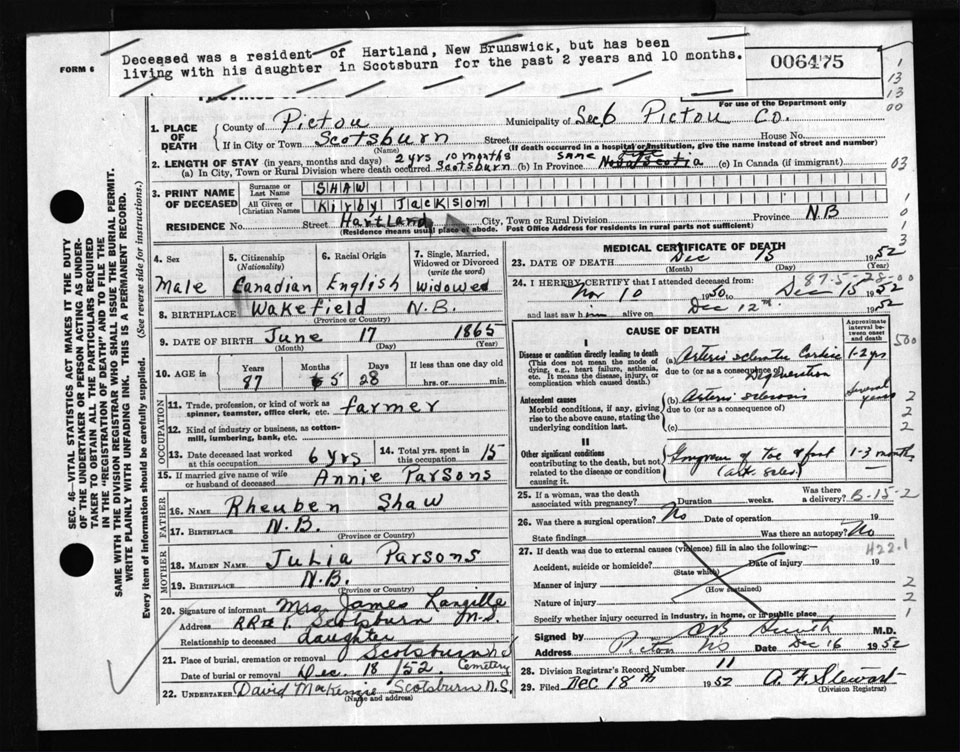 Deceased was a resident of Hartland, New Brunswick, but has been
living with his daughter in Scotsburn for the past 2 years and 10 months.
FORM 6
006475
For use of the Department only
1
13
13
00
1. PLACE OF DEATH
County of Pictou Municipality of Sec 6 Pictou Co.
If in City or Town Scotsburn Street House No.
(Name) (If death occurred in a hospital or institution, give the name instead of street and number)
2. LENGTH OF STAY (in years, months and days) 2 yrs 10 months same
(a) In City, Town or Rural Division where death occurred Scotsburn (b) In Province Nova Scotia (c) In Canada (if immigrant)
03
3. PRINT NAME OF DECEASED
Surname or Last Name SHAW
All Given or Christian Names Kirby Jackson
RESIDENCE No. Street Hartland City, Town or Rural Division Province N.B
(Residence means usual place of abode. Post Office Address for residents in rural parts not sufficient)
1
0
1
3
4. Sex 5. Citizenship (Nationality) 6. Racial Origin 7. Single, Married, Widowed or Divorced (write the word)
Male Canadian English Widowed
8. BIRTHPLACE Wakefield N.B.
(Province or Country)
9. DATE OF BIRTH June 17 1865
(Month) (Day) (Year)
10. AGE in Years Months Days If less than one day old
87 5 28 hrs. or min.
OCCUPATION
11. Trade, profession, or kind of work as spinner, teamster, office clerk, etc. farmer
12. Kind of industry or business, as cotton-mill, lumbering, bank, etc.
13. Date deceased last worked at this occupation 6 yrs 14. Total yrs. spent in this occupation 15
15. If married give name of wife or husband of deceased Annie Parsons
FATHER
16. Name Rheuben Shaw
17. Birthplace N.B.
(Province or Country)
MOTHER
18. MAIDEN NAME Julia Parsons
19. Birthplace N.B.
(Province or Country)
20. Signature of informant Mrs James Langille
Address RR#1. Scotsburn N.S.
Relationship to deceased daughter
21. Place of burial, cremation or removal Scotsburn
Date of burial or removal Dec. 18/52 Cemetery
22. UNDERTAKER David MacKenzie Scotsburn N.S.
(Name and address)
MEDICAL CERTIFICATE OF DEATH
23. DATE OF DEATH Dec 15 1952
(Month) (Day) (Year)
87-5-28-00
24. I HEREBY CERTIFY that I attended deceased from:
Nov 10 1950 to Dec 15 1952
and last saw him alive on Dec 12th 1952
CAUSE OF DEATH
Approximate interval between onset and death
500
I
Disease or condition directly leading to death (a) Arterio sclerotic Cardiac 1-2 yrs
(This does not mean the mode of dying, e.g., heart failure, asthenia, etc. It means the disease, injury, or complication which caused death.)
due to (or as a consequence of) Degeneration
Antecedent causes (b) Arterio sclerosis Several years
Morbid conditions, if any, giving rise to the above cause, stating the underlying condition last.
due to (or as a consequence of)
(c)
2
2
2
II
Other significant conditions Gangrene of Toe & foot 1-3 months
contributing to the death, but not related to the disease or condition causing it.
25. If a woman, was the death associated with pregnancy? Duration weeks. Was there a delivery? B-15-2
26. Was there a surgical operation? No Date of operation 19
State findings Was there an autopsy? No
H22.1
27. If death was due to external causes (violence) fill in also the following:
Accident, suicide or homicide? Date of injury 19
(State which)
Manner of injury 2
(How sustained)
Nature of injury 2
Specify whether injury occurred in industry, in home, or in public place 1
Signed by Smith M.D.
Address Pictou NS Date Dec 16 1952
28. Division Registrar's Record Number 11
29. Filed Dec 18th 1952 A. F. Stewart
(Division Registrar)
SEC. 46—VITAL STATISTICS ACT MAKES IT THE DUTY
OF THE UNDERTAKER OR PERSON ACTING AS UNDER-
TAKER TO OBTAIN ALL THE PARTICULARS REQUIRED
IN THE "REGISTRATION OF DEATH" AND TO FILE THE
SAME WITH THE DIVISION REGISTRAR WHO SHALL ISSUE THE BURIAL PERMIT.
WRITE PLAINLY WITH UNFADING INK. THIS IS A PERMANENT RECORD.
Every item of information should be carefully supplied. (See reverse side for instructions.)